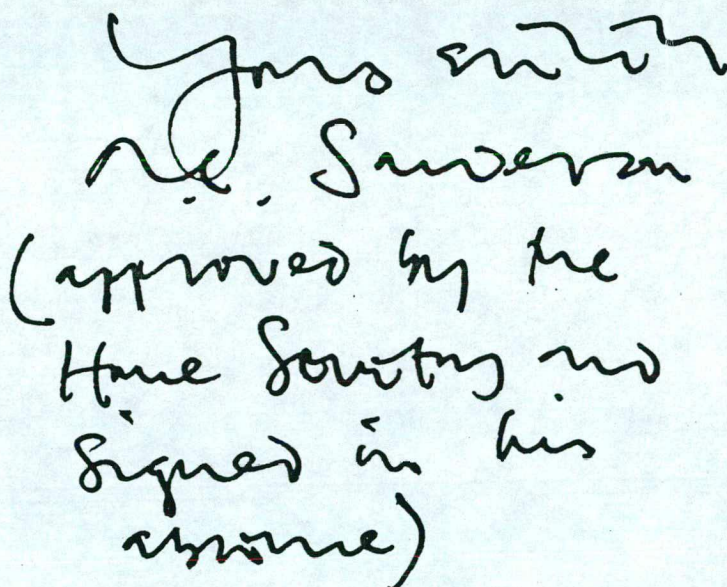 Yours sincerely
N.C. Sanderson
(approved by the
Home Secretary and
signed in his
absence)